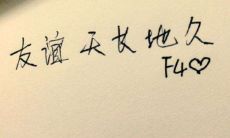 友谊 天长地久
F4♡